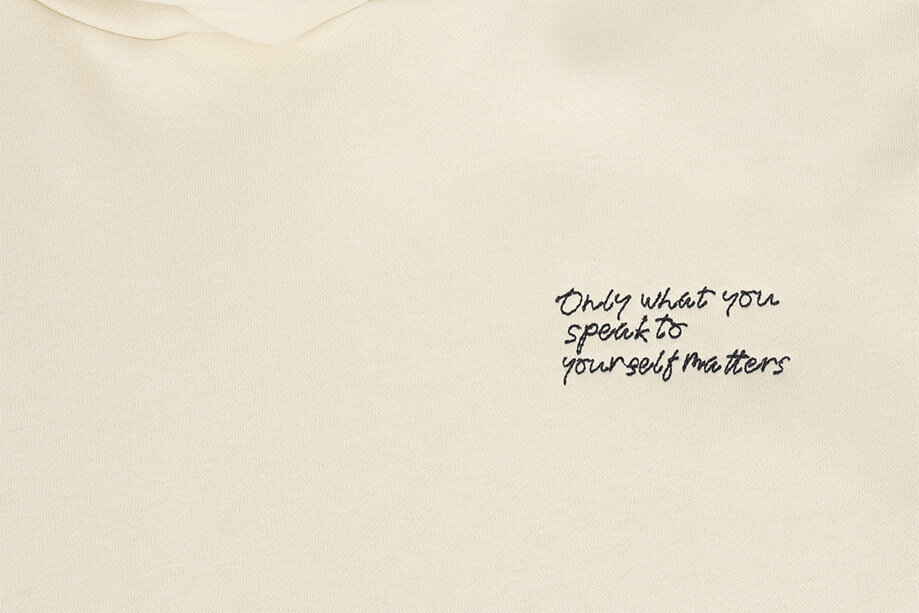 Only what you
speak to
yourself matters